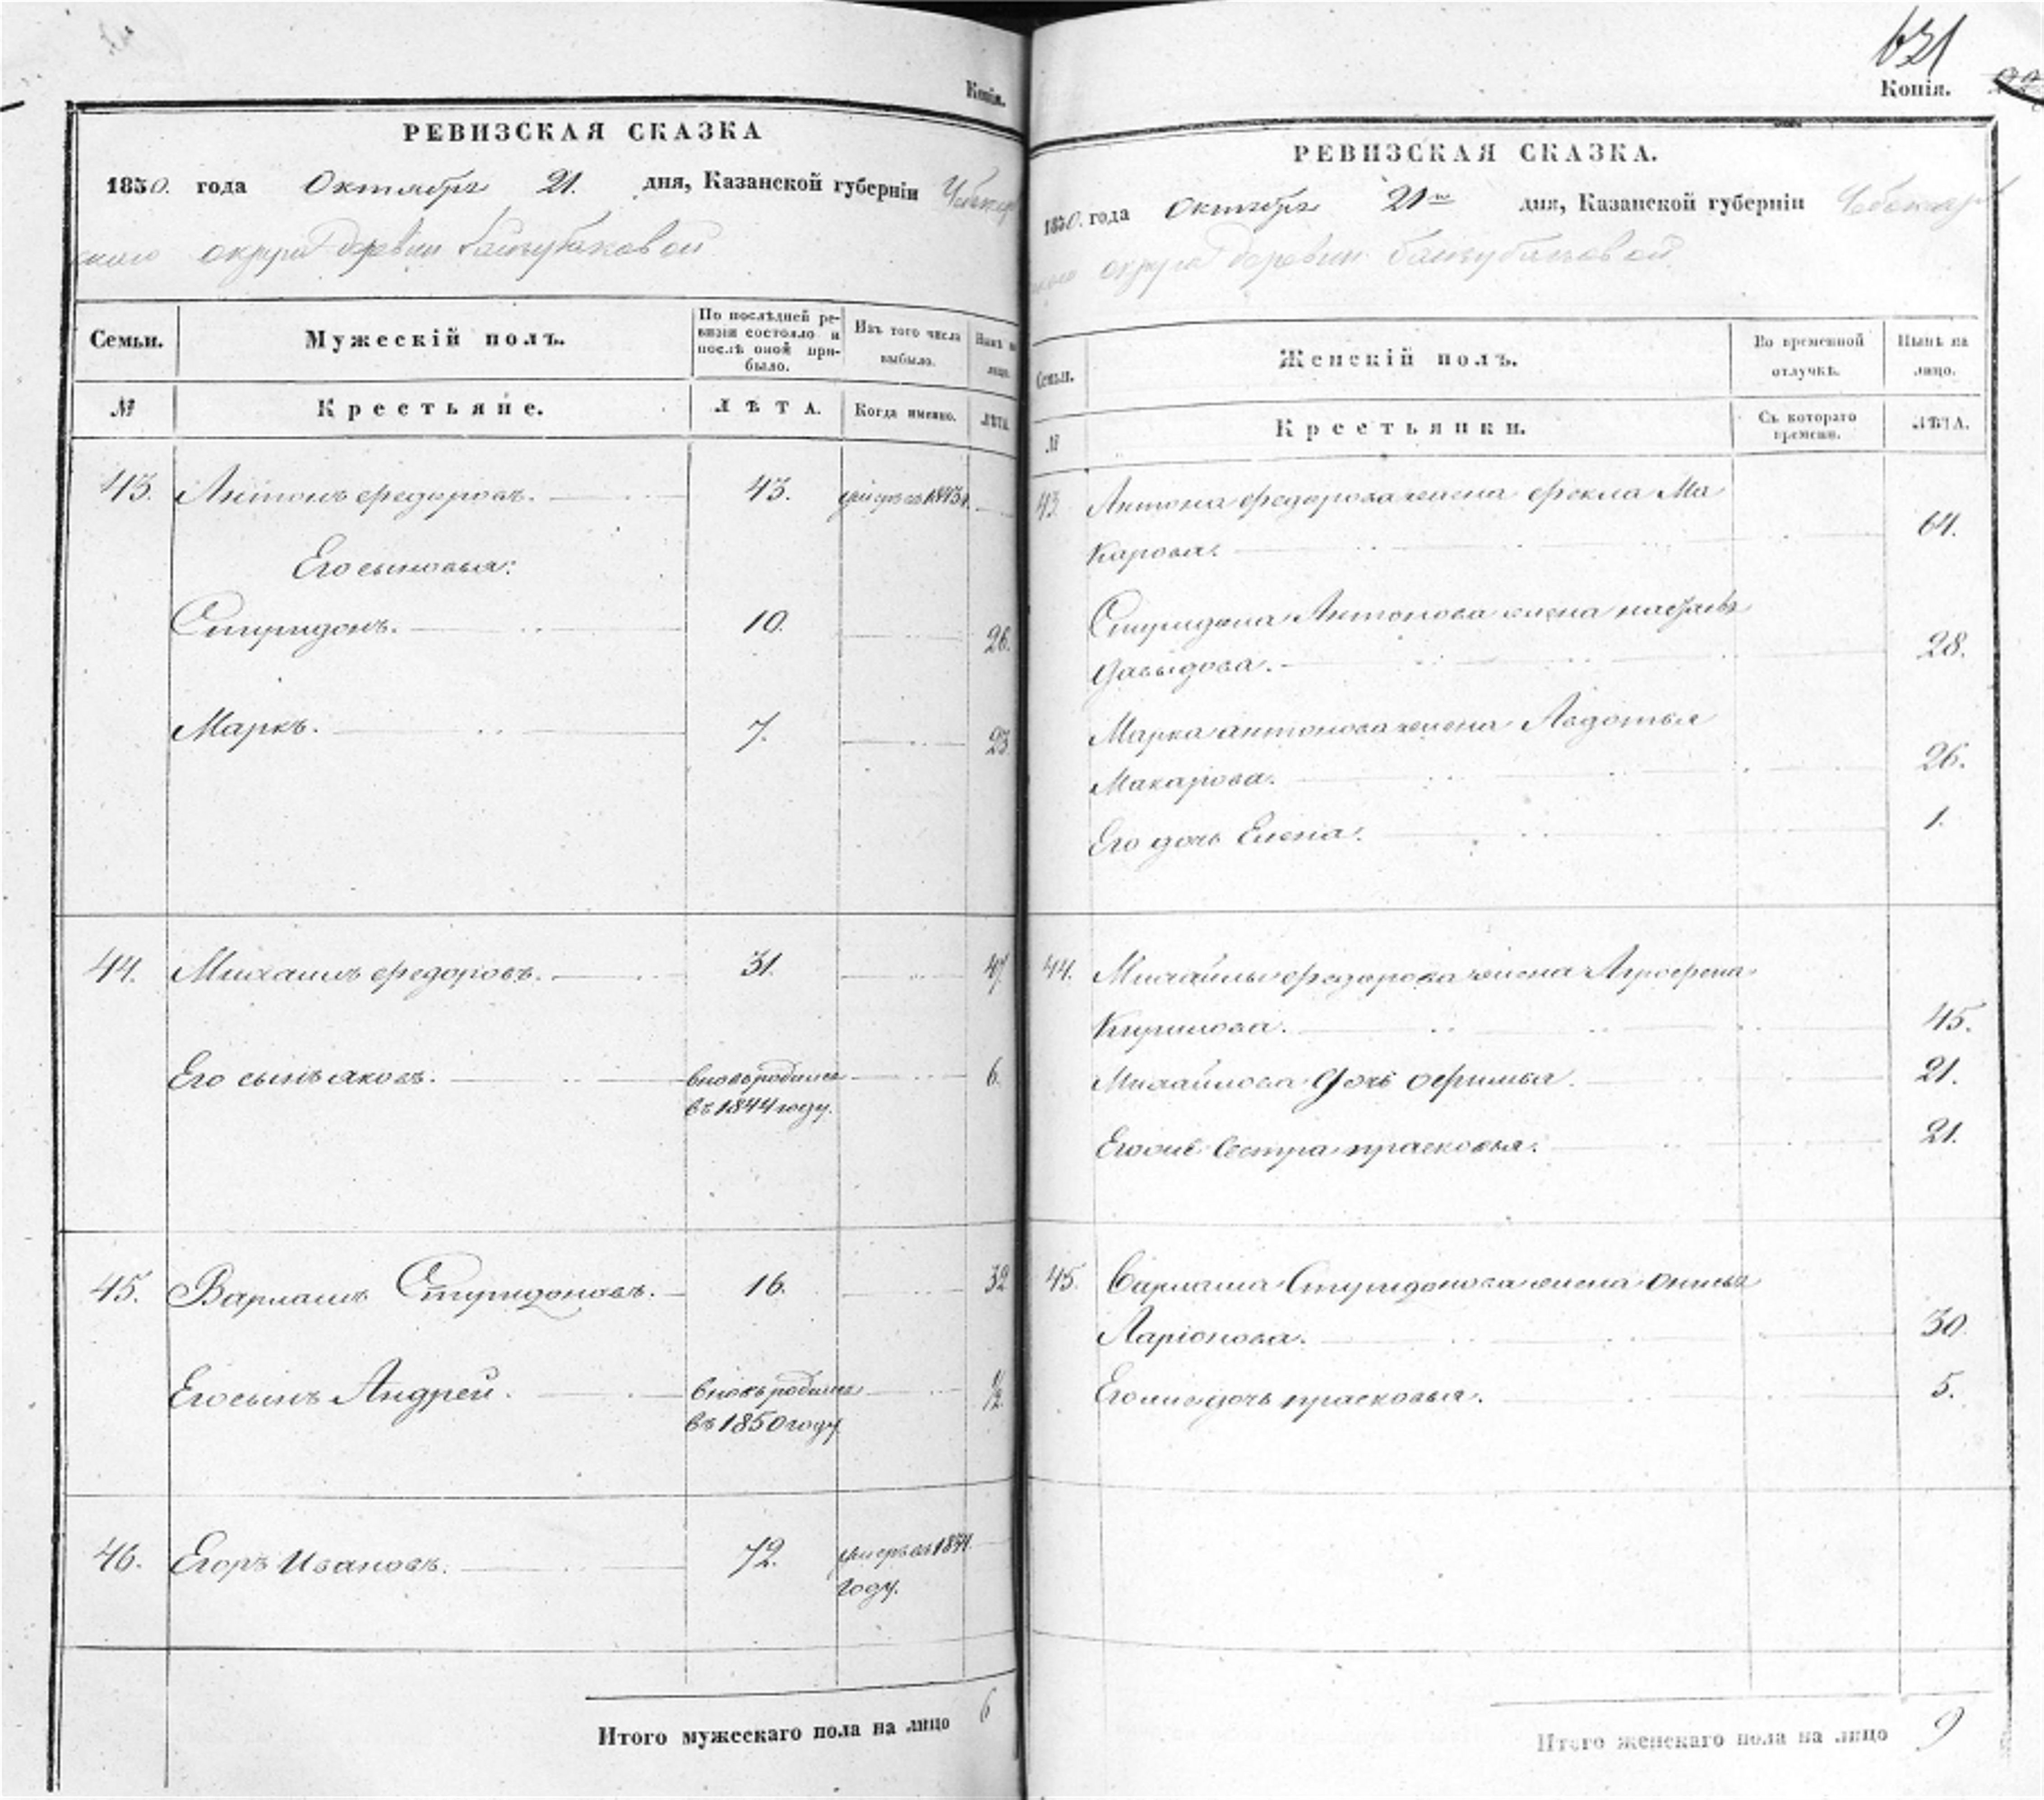 Копія.
РЕВИЗСКАЯ СКАЗКА
1850. года Октября 21. дня, Казанской губерніи Чебоксар
скаго округа деревни
Семьи. Мужескій полъ. По послѣдней ре-
визіи состояло и
послѣ оной при-
было. Изъ того числа
выбыло. Нынѣ на
лицо.
№ Крестьяне. ЛѢТА. Когда именно. ЛѢТА.
43. Антонъ федоровъ. 43. умеръ въ 1843 г.
Его сыновья:
Спиридонъ. 10. 26.
Маркъ. 7. 23
44. Михаилъ федоровъ. 31. 47
Его сынъ яковъ. вновь родился 6.
въ 1844 году.
45. Варламъ Спиридоновъ. 16. 32
Его сынъ Андрей. вновь родился ½
въ 1850 году
46. Егоръ Ивановъ. 72. умеръ въ 1841
году.
Итого мужескаго пола на лицо 6
631
Копія.
РЕВИЗСКАЯ СКАЗКА.
1850. года Октября 21го дня, Казанской губерніи Чебоксар
скаго округа деревни
Семьи. Женскій полъ. Во временной
отлучкѣ. Нынѣ на
лицо.
№ Крестьянки. Съ котораго
времени. ЛѢТА.
43. Антона федорова жена фекла Ма
карова. 64.
Спиридона Антонова жена
Давыдова. 28.
Марка антонова жена Авдотья
Макарова. 26.
Его дочь Елена. 1.
44. Михайлы федорова жена Агрофена
Кирилова. 45.
Михайлова Дочь офимья. 21.
Его Сестра прасковья. 21.
45. Варлама Спиридонова жена Анисья
Ларіонова. 30.
Его дочь прасковья. 5.
Итого женскаго пола на лицо 9